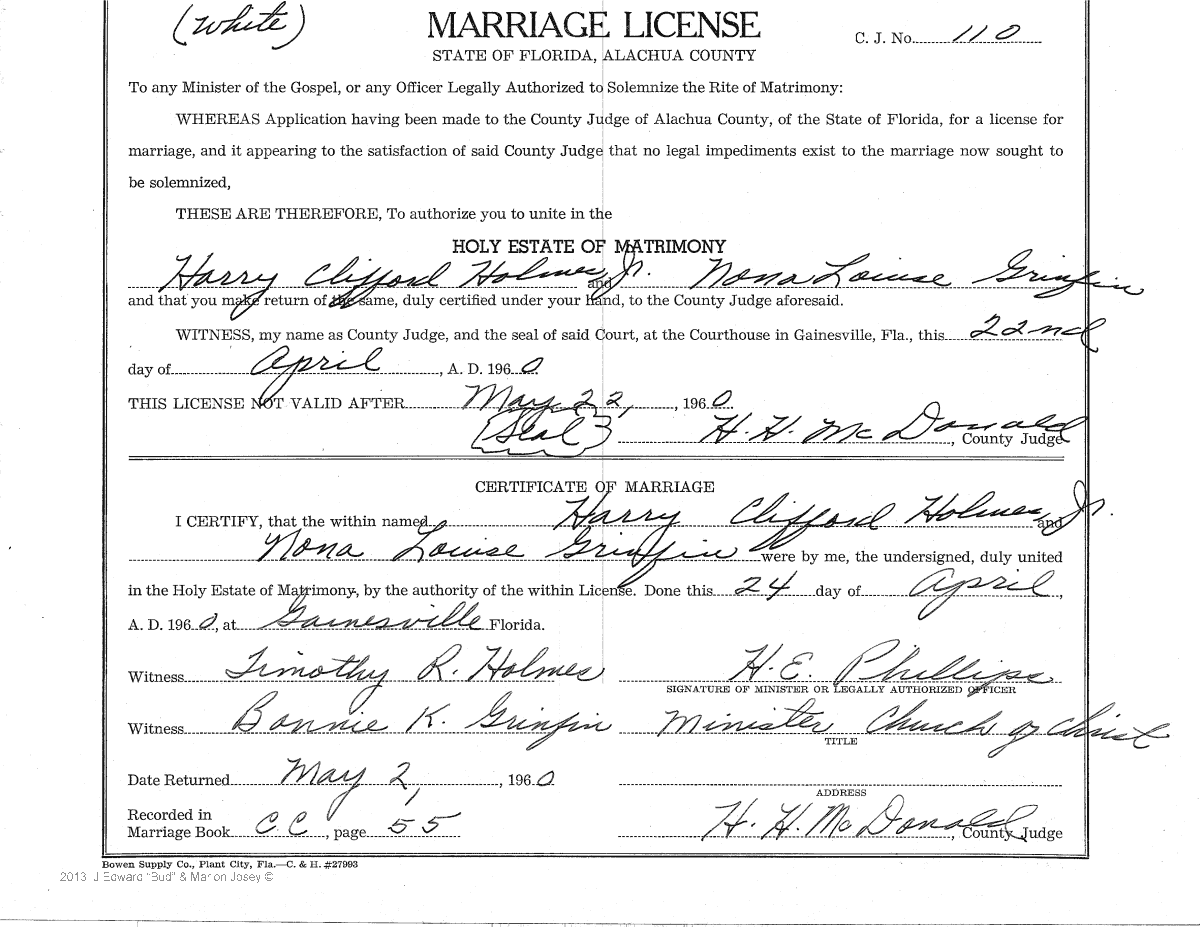 (White)
MARRIAGE LICENSE
C. J. No. 110
STATE OF FLORIDA, ALACHUA COUNTY
To any Minister of the Gospel, or any Officer Legally Authorized to Solemnize the Rite of Matrimony:
WHEREAS Application having been made to the County Judge of Alachua County, of the State of Florida, for a license for
marriage, and it appearing to the satisfaction of said County Judge that no legal impediments exist to the marriage now sought to
be solemnized,
THESE ARE THEREFORE, To authorize you to unite in the
HOLY ESTATE OF MATRIMONY
Harry Clifford Holmes, Jr. and Nona Louise Grinfin
and that you make return of the same, duly certified under your hand, to the County Judge aforesaid.
WITNESS, my name as County Judge, and the seal of said Court, at the Courthouse in Gainesville, Fla., this 22nd
day of April, A. D. 1960
THIS LICENSE NOT VALID AFTER May 22, , 1960
(Seal) H. H. McDonald, County Judge
CERTIFICATE OF MARRIAGE
I CERTIFY, that the within named Harry Clifford Holmes, Jr. and
Nona Louise Grinfin were by me, the undersigned, duly united
in the Holy Estate of Matrimony, by the authority of the within License. Done this 24 day of April,
A. D. 1960, at Gainesville Florida.
Witness Timothy R. Holmes H. E. Phillips
SIGNATURE OF MINISTER OR LEGALLY AUTHORIZED OFFICER
Witness Bonnie K. Grinfin Minister Church of Christ
TITLE
Date Returned May 2, , 1960
ADDRESS
Recorded in
Marriage Book CC, page 55 H. H. McDonald, County Judge
Bowen Supply Co., Plant City, Fla.—C. & H. #27993
2013 J Edward "Bud" & Marion Josey ©